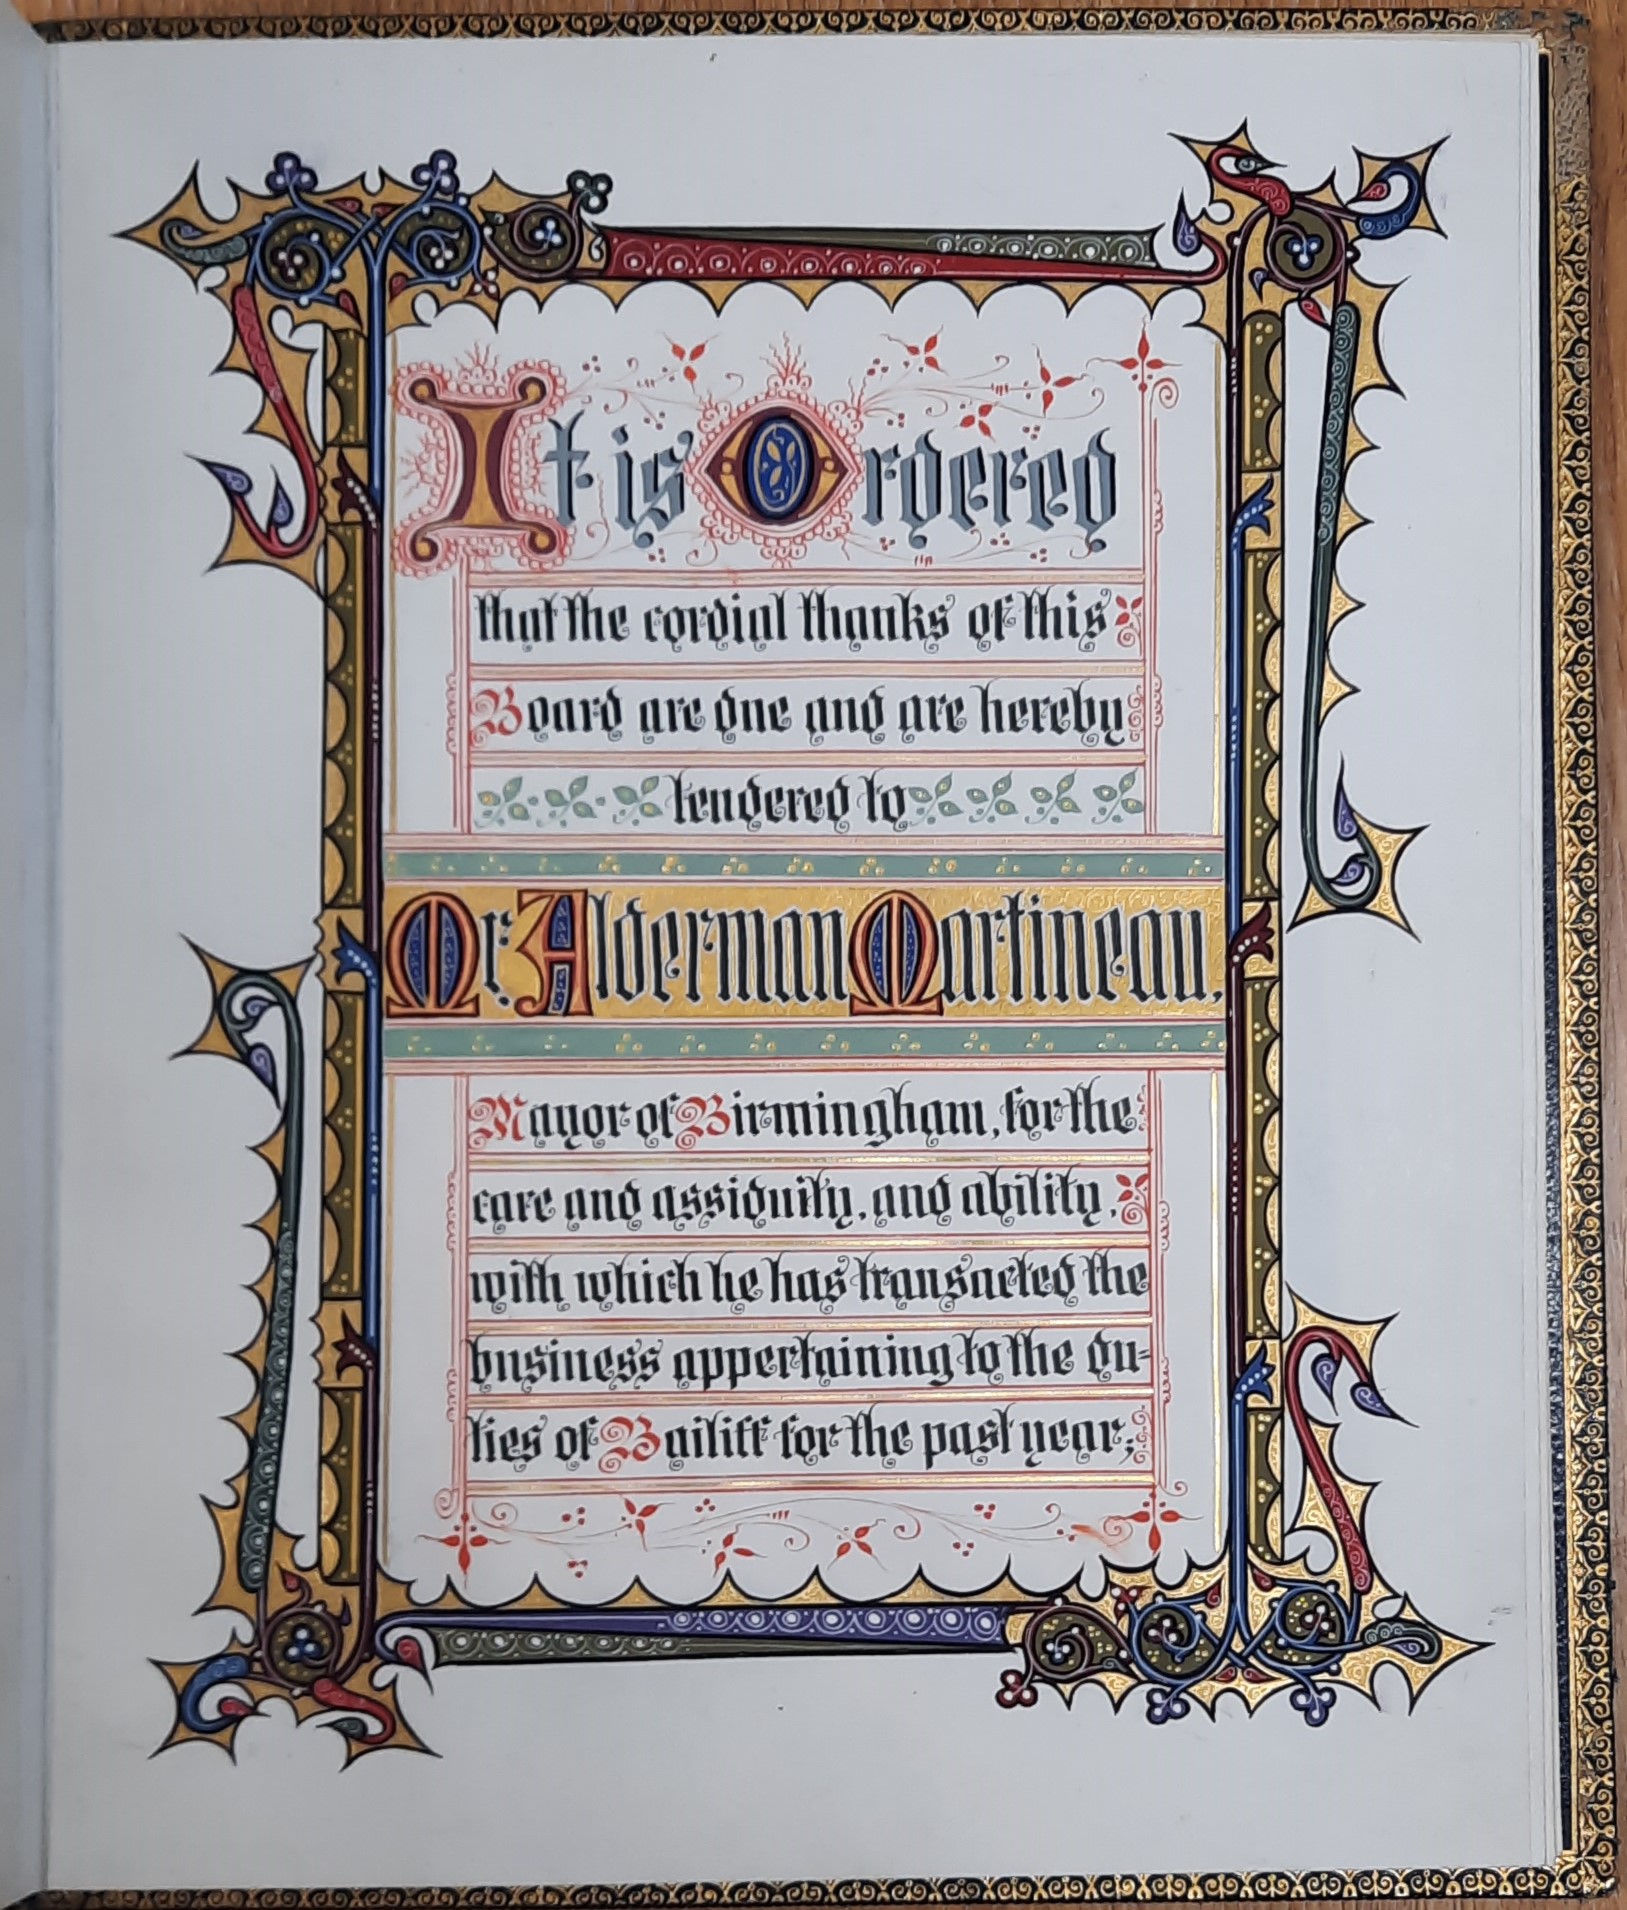 It is Ordered
that the cordial thanks of this
Board are due and are hereby
tendered to
Mr. Alderman Martineau,
Mayor of Birmingham, for the
care and assiduity, and ability,
with which he has transacted the
business appertaining to the du-
ties of Bailiff for the past year;